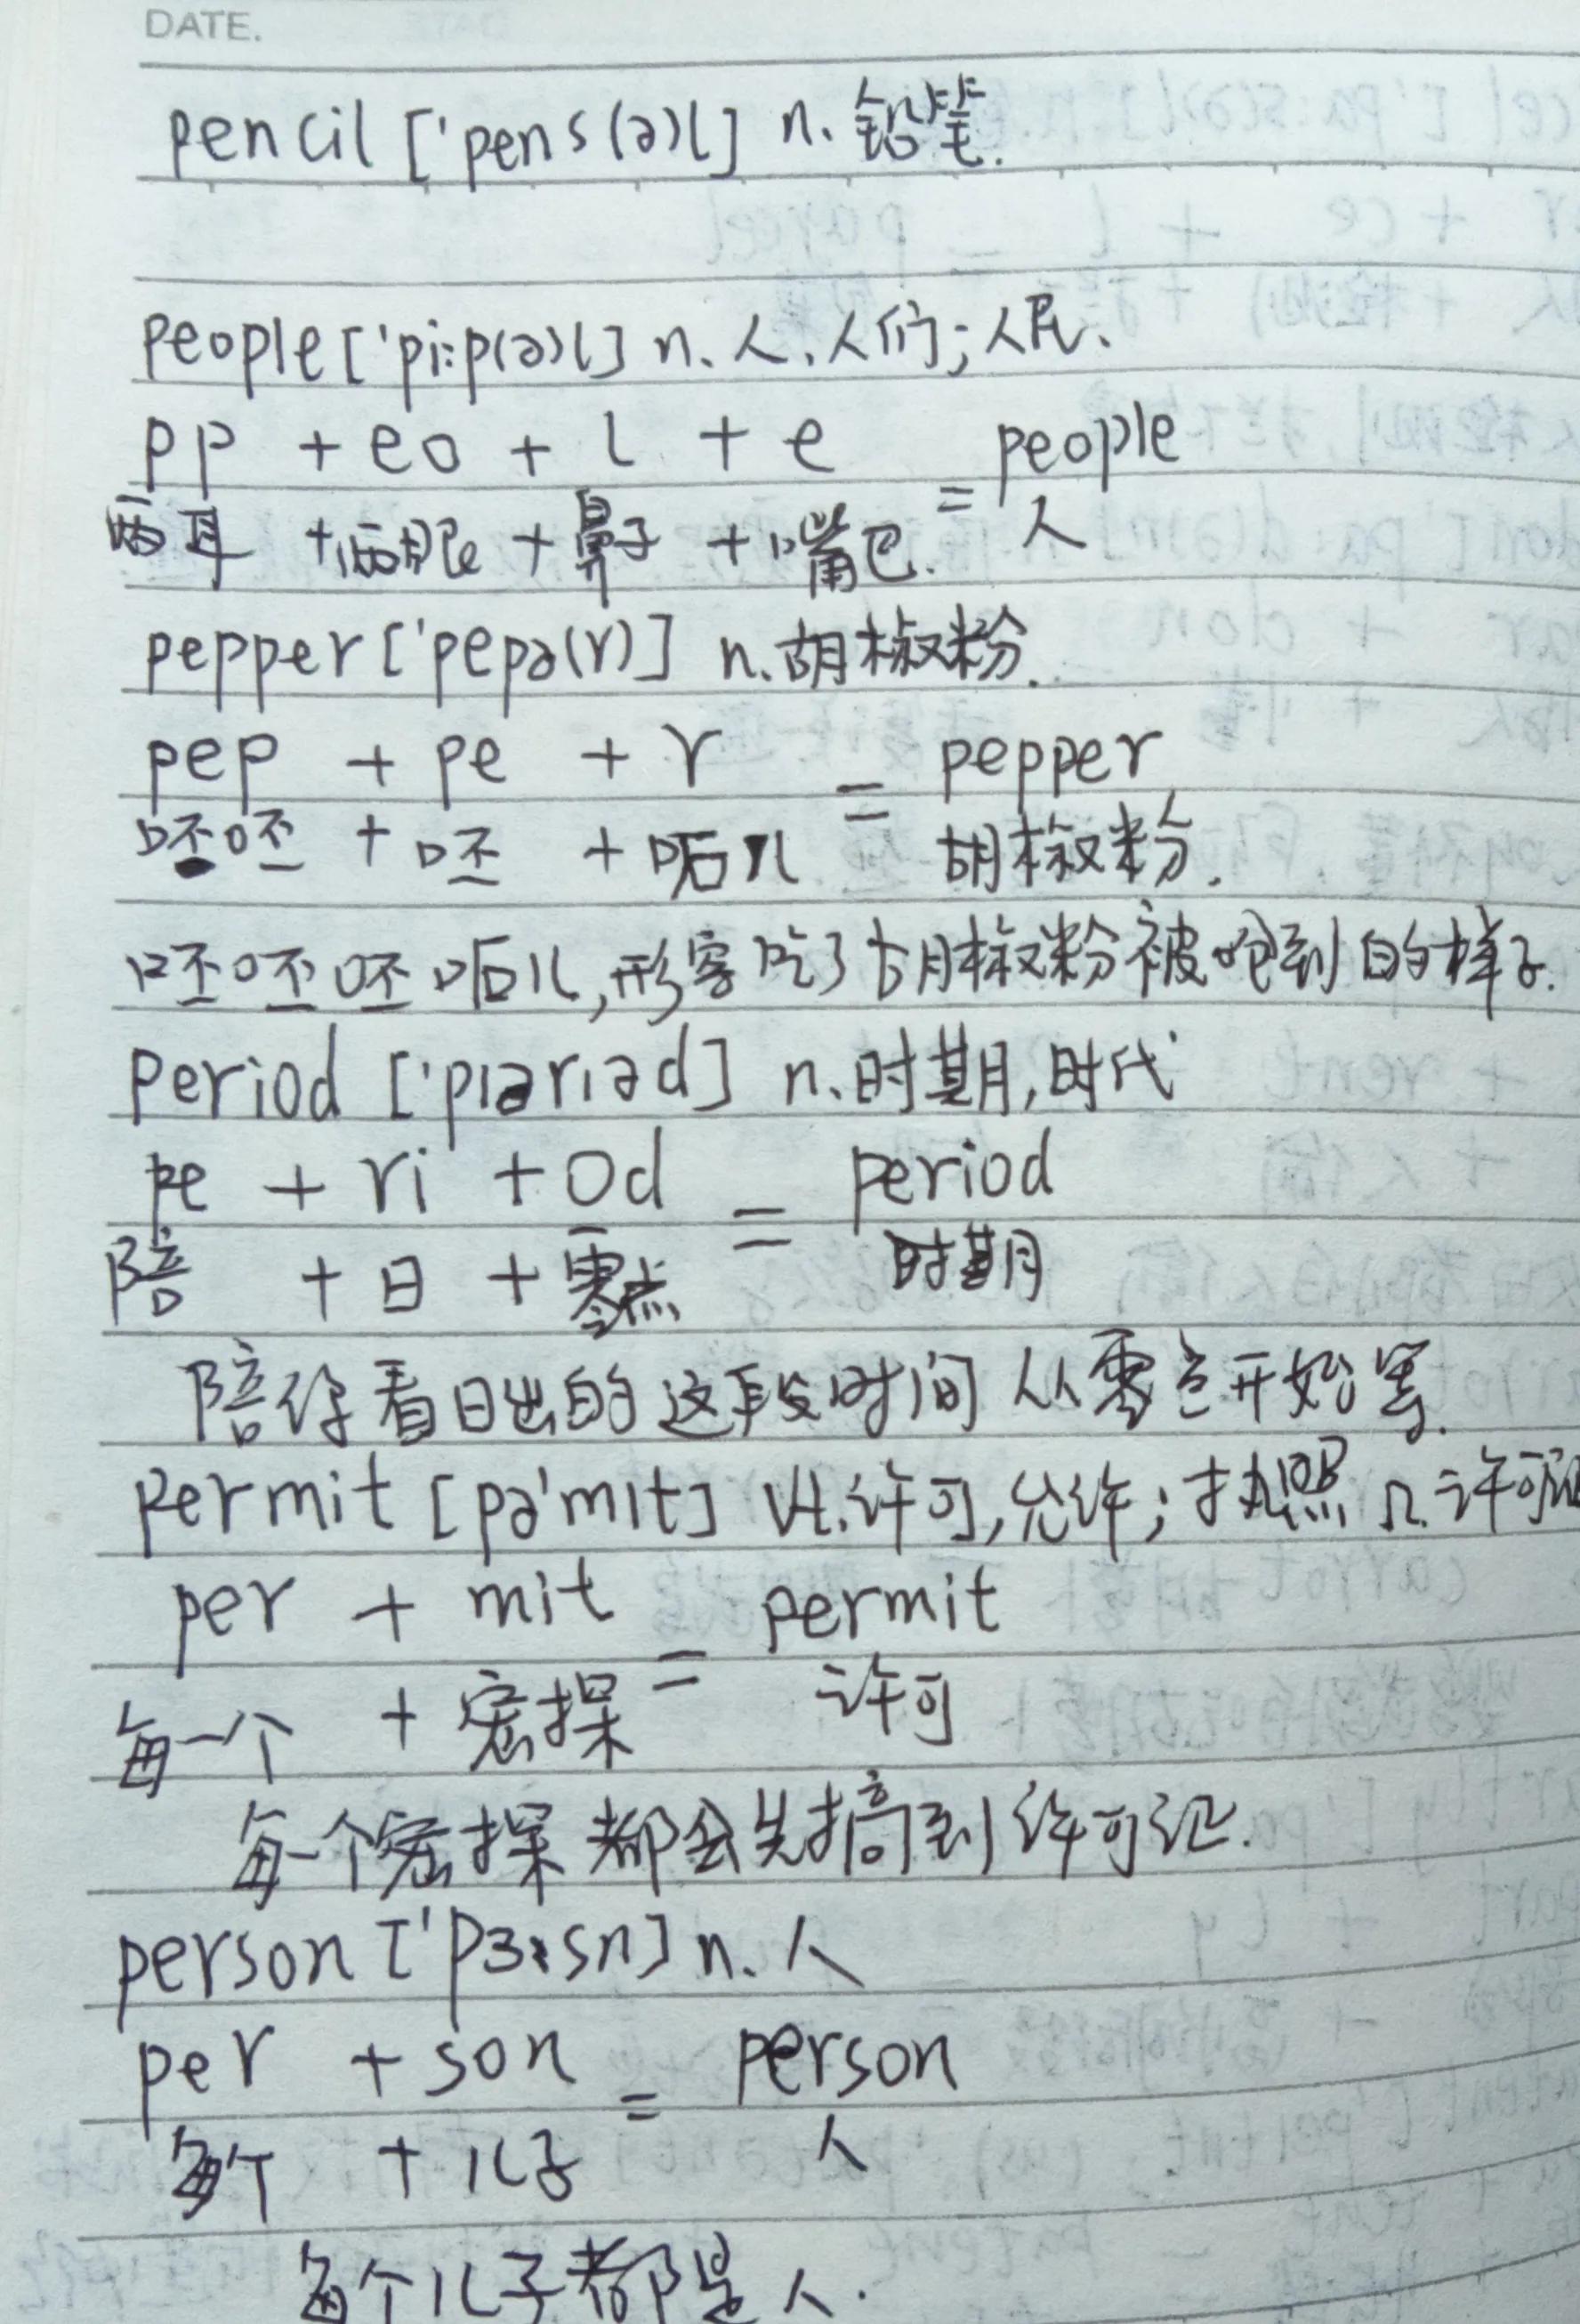 DATE.
pencil ['pens(ə)l] n. 铅笔.
people ['pi:p(ə)l] n. 人, 人们; 人民.
pp + eo + l + e = people
两耳 + 两眼 + 鼻子 + 嘴巴. 人
pepper ['pepə(r)] n. 胡椒粉.
pep + pe + r = pepper
呸呸 + 呸 + 呃儿 胡椒粉.
呸呸呸呃儿, 形容吃了胡椒粉被呛到的样子.
period ['pɪərɪəd] n. 时期, 时代
pe + ri + od = period
陪 + 日 + 零点 时期
陪你看日出的这段时间从零点开始算.
permit [pə'mɪt] vt. 许可, 允许; 执照 n. 许可证
per + mit = permit
每一个 + 密探 许可
每一个密探都会先搞到许可证.
person ['pɜ:sn] n. 人
per + son = person
每个 + 儿子 人
每个儿子都是人.